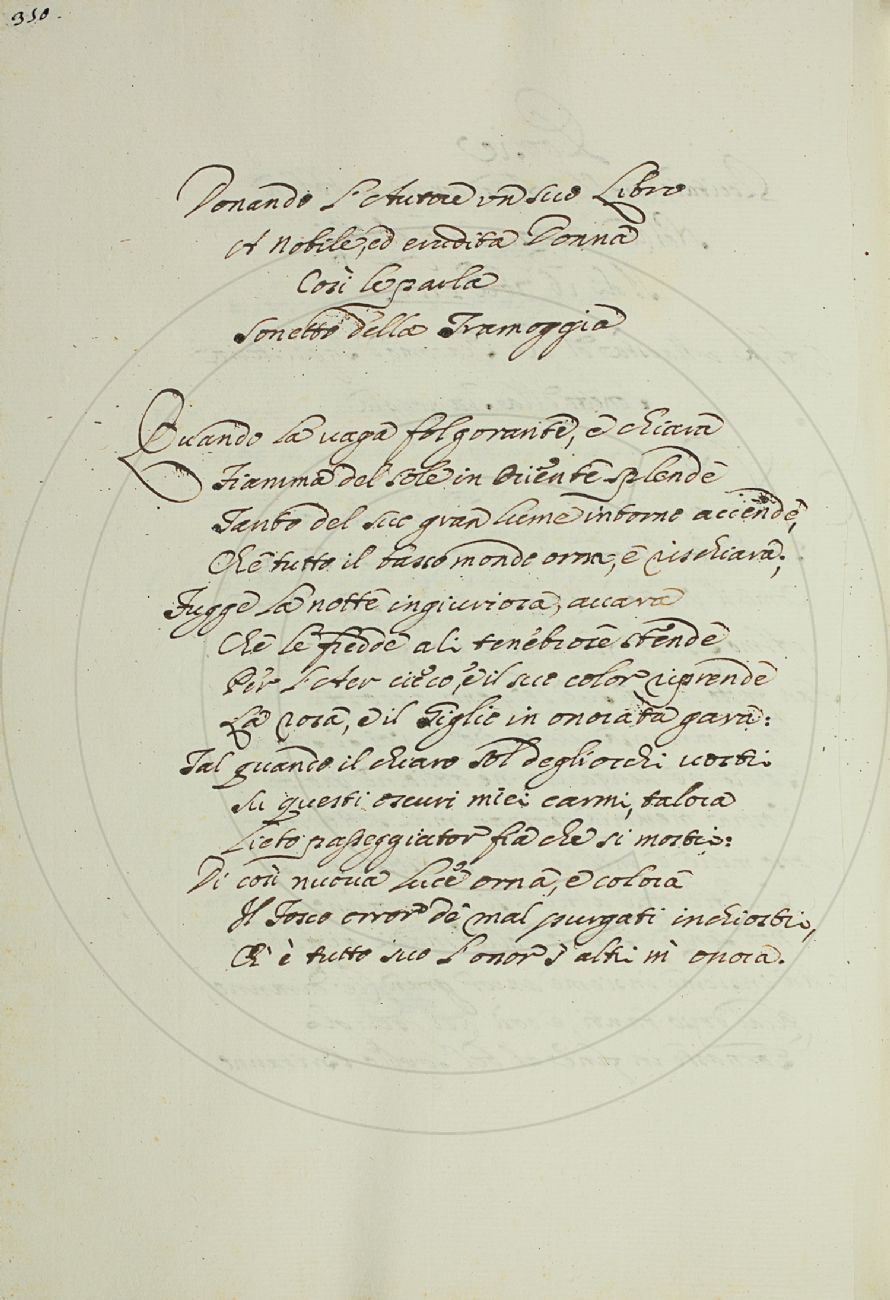 310.
Donando l'Autore vn suo Libro
A Nobile, ed erudita Donna
Così le parla
Sonetto della Tramoggia
Quando la uaga folgorante, e chiara
Fiamma del Sole in Oriente splende
Tanto del suo gran lume intorno accende,
Che tutto il basso mondo orna, e rischiara;
Fugge la notte ingiuriosa, auara
Che le fredde ali tenebrose stende
Per l'Aer cieco, e il suo color riprende
La rosa, e il Giglio in onorata gara:
Tal quando il chiaro Sol degliocchi uostri
Su questi oscuri miei carmi, talora
Lieto passeggiator fia che si mostri:
Di così nuoua luce orna, e colora
Il fosco error de mal purgati inchiostri,
Ch' è tutto suo l'onor s'altri m' onora.